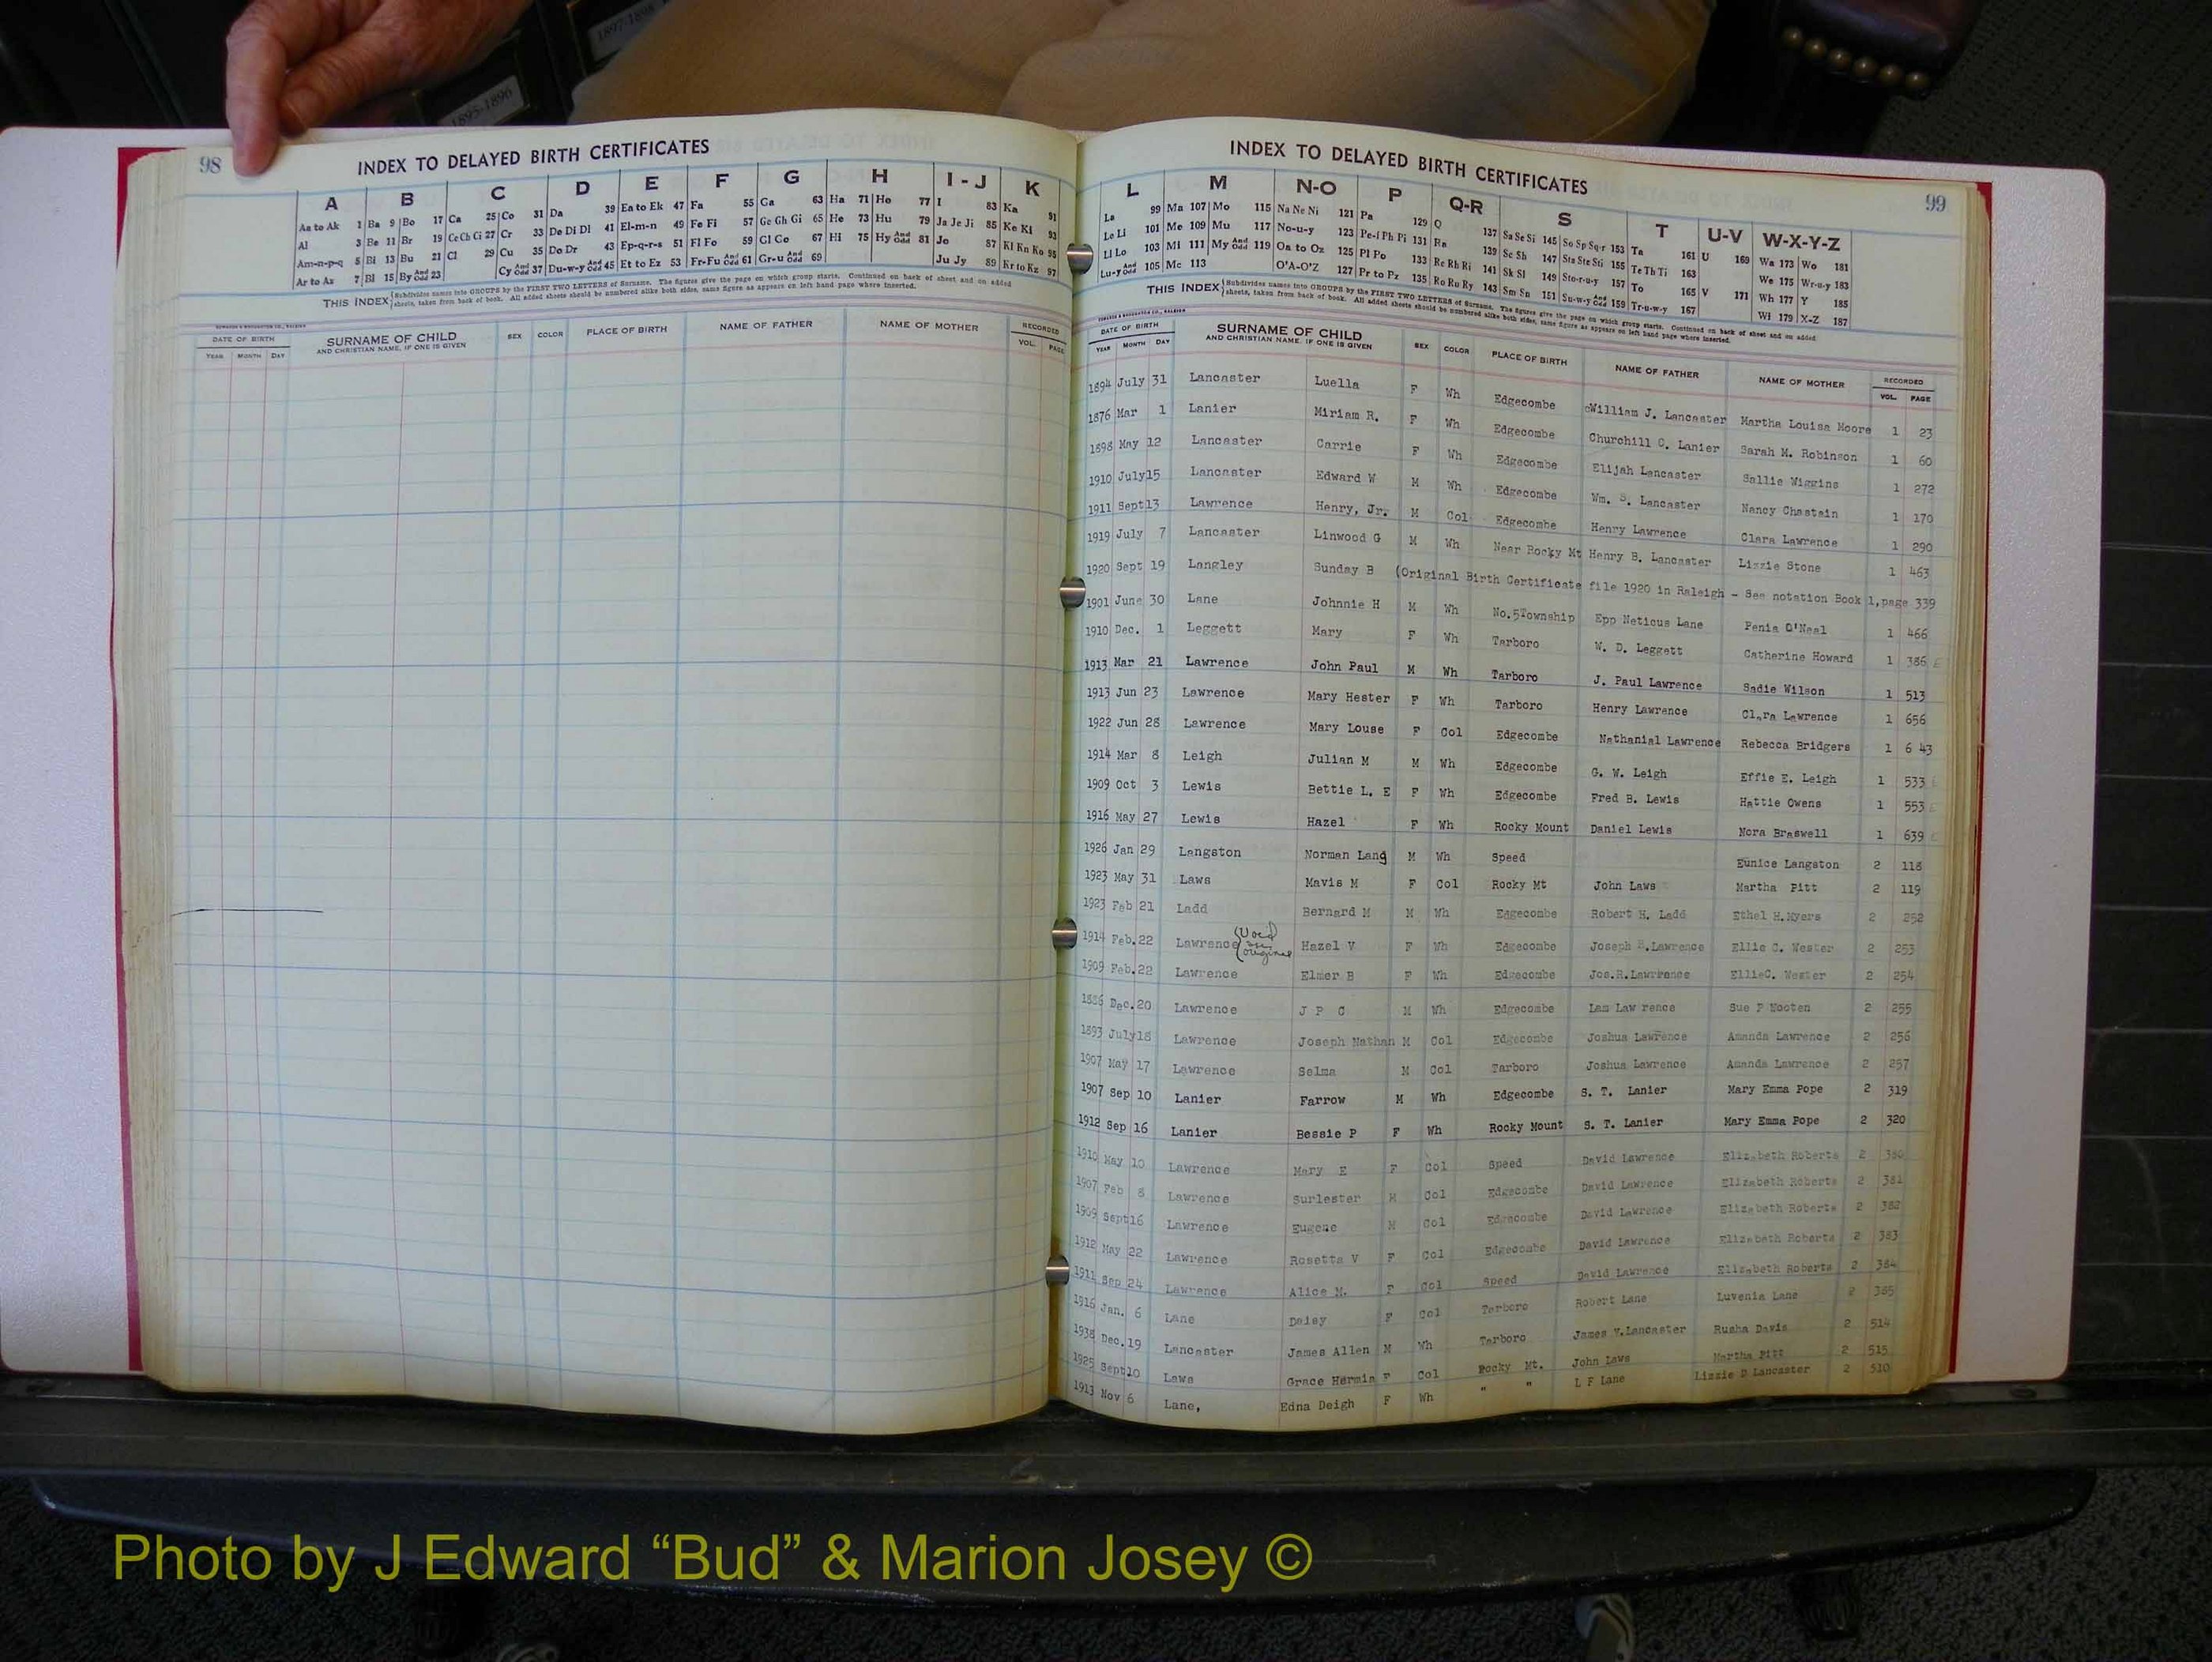 1897-1898
1895-1896
98
INDEX TO DELAYED BIRTH CERTIFICATES
A B C D E F G H I - J K
Aa to Ak 1 Ba 9 Bo 17 Ca 25 Co 31 Da 39 Ea to Ek 47 Fa 55 Ga 63 Ha 71 Ho 77 I 83 Ka 91
Al 3 Be 11 Br 19 Ce Ch Ci 27 Cr 33 De Di Dl 41 El-m-n 49 Fe Fi 57 Ge Gh Gi 65 He 73 Hu 79 Ja Je Ji 85 Ke Ki 93
Am-n-p-q 5 Bi 13 Bu 21 Cl 29 Cu 35 Do Dr 43 Ep-q-r-s 51 Fl Fo 59 Gl Go 67 Hi 75 Hy And Odd 81 Jo 87 Kl Kn Ko 95
Ar to Az 7 Bl 15 By And Odd 23 Cy And Odd 37 Du-w-y And Odd 45 Et to Ez 53 Fr-Fu And Odd 61 Gr-u And Odd 69 Ju Jy 89 Kr to Kz 97
THIS INDEX Subdivides names into GROUPS by the FIRST TWO LETTERS of Surname. The figures give the page on which group starts. Continued on back of sheet and on added
sheets, taken from back of book. All added sheets should be numbered alike both sides, same figure as appears on left hand page where inserted.
DATE OF BIRTH SURNAME OF CHILD SEX COLOR PLACE OF BIRTH NAME OF FATHER NAME OF MOTHER RECORDED
YEAR MONTH DAY AND CHRISTIAN NAME, IF ONE IS GIVEN VOL. PAGE
INDEX TO DELAYED BIRTH CERTIFICATES
99
L M N-O P Q-R S T U-V W-X-Y-Z
La 99 Ma 107 Mo 115 Na Ne Ni 121 Pa 129 Q 137 Sa Se Si 145 So Sp Sq-r 153 Ta 161 U 169 Wa 173 Wo 181
Le Li 101 Me 109 Mu 117 No-u-y 123 Pe-f Ph Pi 131 Ra 139 Sc Sh 147 Sta Ste Sti 155 Te Th Ti 163 We 175 Wr-u-y 183
Ll Lo 103 Mi 111 My And Odd 119 Oa to Oz 125 Pl Po 133 Re Rh Ri 141 Sk Sl 149 Sto-r-u-y 157 To 165 V 171 Wh 177 Y 185
Lu-y And Odd 105 Mc 113 O'A-O'Z 127 Pr to Pz 135 Ro Ru Ry 143 Sm Sn 151 Su-w-y And Odd 159 Tr-u-w-y 167 Wi 179 X-Z 187
THIS INDEX Subdivides names into GROUPS by the FIRST TWO LETTERS of Surname. The figures give the page on which group starts. Continued on back of sheet and on added
sheets, taken from back of book. All added sheets should be numbered alike both sides, same figure as appears on left hand page where inserted.
DATE OF BIRTH SURNAME OF CHILD SEX COLOR PLACE OF BIRTH NAME OF FATHER NAME OF MOTHER RECORDED
YEAR MONTH DAY AND CHRISTIAN NAME, IF ONE IS GIVEN VOL. PAGE
1894 July 31 Lancaster Luella F Wh Edgecombe William J. Lancaster Martha Louisa Moore 1 23
1876 Mar 1 Lanier Miriam R. F Wh Edgecombe Churchill C. Lanier Sarah M. Robinson 1 60
1898 May 12 Lancaster Carrie F Wh Edgecombe Elijah Lancaster Sallie Wiggins 1 272
1910 July 15 Lancaster Edward W M Wh Edgecombe Wm. S. Lancaster Nancy Chastain 1 170
1911 Sept 13 Lawrence Henry, Jr. M Col Edgecombe Henry Lawrence Clara Lawrence 1 290
1919 July 7 Lancaster Linwood G M Wh Near Rocky Mt Henry B. Lancaster Lizzie Stone 1 463
1920 Sept 19 Langley Sunday B (Original Birth Certificate file 1920 in Raleigh - See notation Book 1, page 339
1901 June 30 Lane Johnnie H M Wh No.5 Township Epp Neticus Lane Penia O'Neal 1 466
1910 Dec. 1 Leggett Mary F Wh Tarboro W. D. Leggett Catherine Howard 1 386
1913 Mar 21 Lawrence John Paul M Wh Tarboro J. Paul Lawrence Sadie Wilson 1 513
1913 Jun 23 Lawrence Mary Hester F Wh Tarboro Henry Lawrence Clara Lawrence 1 656
1922 Jun 28 Lawrence Mary Louse F Col Edgecombe Nathanial Lawrence Rebecca Bridgers 1 6 43
1914 Mar 8 Leigh Julian M M Wh Edgecombe G. W. Leigh Effie E. Leigh 1 533
1909 Oct 3 Lewis Bettie L. E F Wh Edgecombe Fred B. Lewis Hattie Owens 1 553
1916 May 27 Lewis Hazel F Wh Rocky Mount Daniel Lewis Nora Braswell 1 639
1926 Jan 29 Langston Norman Lang M Wh Speed Eunice Langston 2 118
1923 May 31 Laws Mavis M F Col Rocky Mt John Laws Martha Pitt 2 119
1923 Feb 21 Ladd Bernard M M Wh Edgecombe Robert H. Ladd Ethel H.Myers 2 252
1914 Feb. 22 Lawrence (Void on original Hazel V F Wh Edgecombe Joseph R.Lawrence Ellie C. Wester 2 253
1909 Feb. 22 Lawrence Elmer B F Wh Edgecombe Jos.R.Lawrence EllieC. Wester 2 254
1886 Dec. 20 Lawrence J P C M Wh Edgecombe Lam Law rence Sue P Wooten 2 255
1893 July 18 Lawrence Joseph Nathan M Col Edgecombe Joshua Lawrence Amanda Lawrence 2 256
1907 May 17 Lawrence Selma M Col Tarboro Joshua Lawrence Amanda Lawrence 2 257
1907 Sep 10 Lanier Farrow M Wh Edgecombe S. T. Lanier Mary Emma Pope 2 319
1912 Sep 16 Lanier Bessie P F Wh Rocky Mount S. T. Lanier Mary Emma Pope 2 320
1910 May 10 Lawrence Mary E F Col Speed David Lawrence Elizabeth Roberts 2 380
1907 Feb 8 Lawrence Surlester M Col Edgecombe David Lawrence Elizabeth Roberts 2 381
1909 Sept 16 Lawrence Eugene M Col Edgecombe David Lawrence Elizabeth Roberts 2 382
1912 May 22 Lawrence Rosetta V F Col Edgecombe David Lawrence Elizabeth Roberts 2 383
1911 Sep 24 Lawrence Alice M. F Col Speed David Lawrence Elizabeth Roberts 2 384
1916 Jan. 6 Lane Daisy F Col Tarboro Robert Lane Luvenia Lane 2 385
1938 Dec. 19 Lancaster James Allen M Wh Tarboro James V.Lancaster Rusha Davis 2 514
1925 Sept 10 Laws Grace Hermin F Col Rocky Mt. John Laws Martha Pitt 2 515
1913 Nov 6 Lane, Edna Deigh F Wh " " L F Lane Lizzie D Lancaster 2 510
Photo by J Edward “Bud” & Marion Josey ©